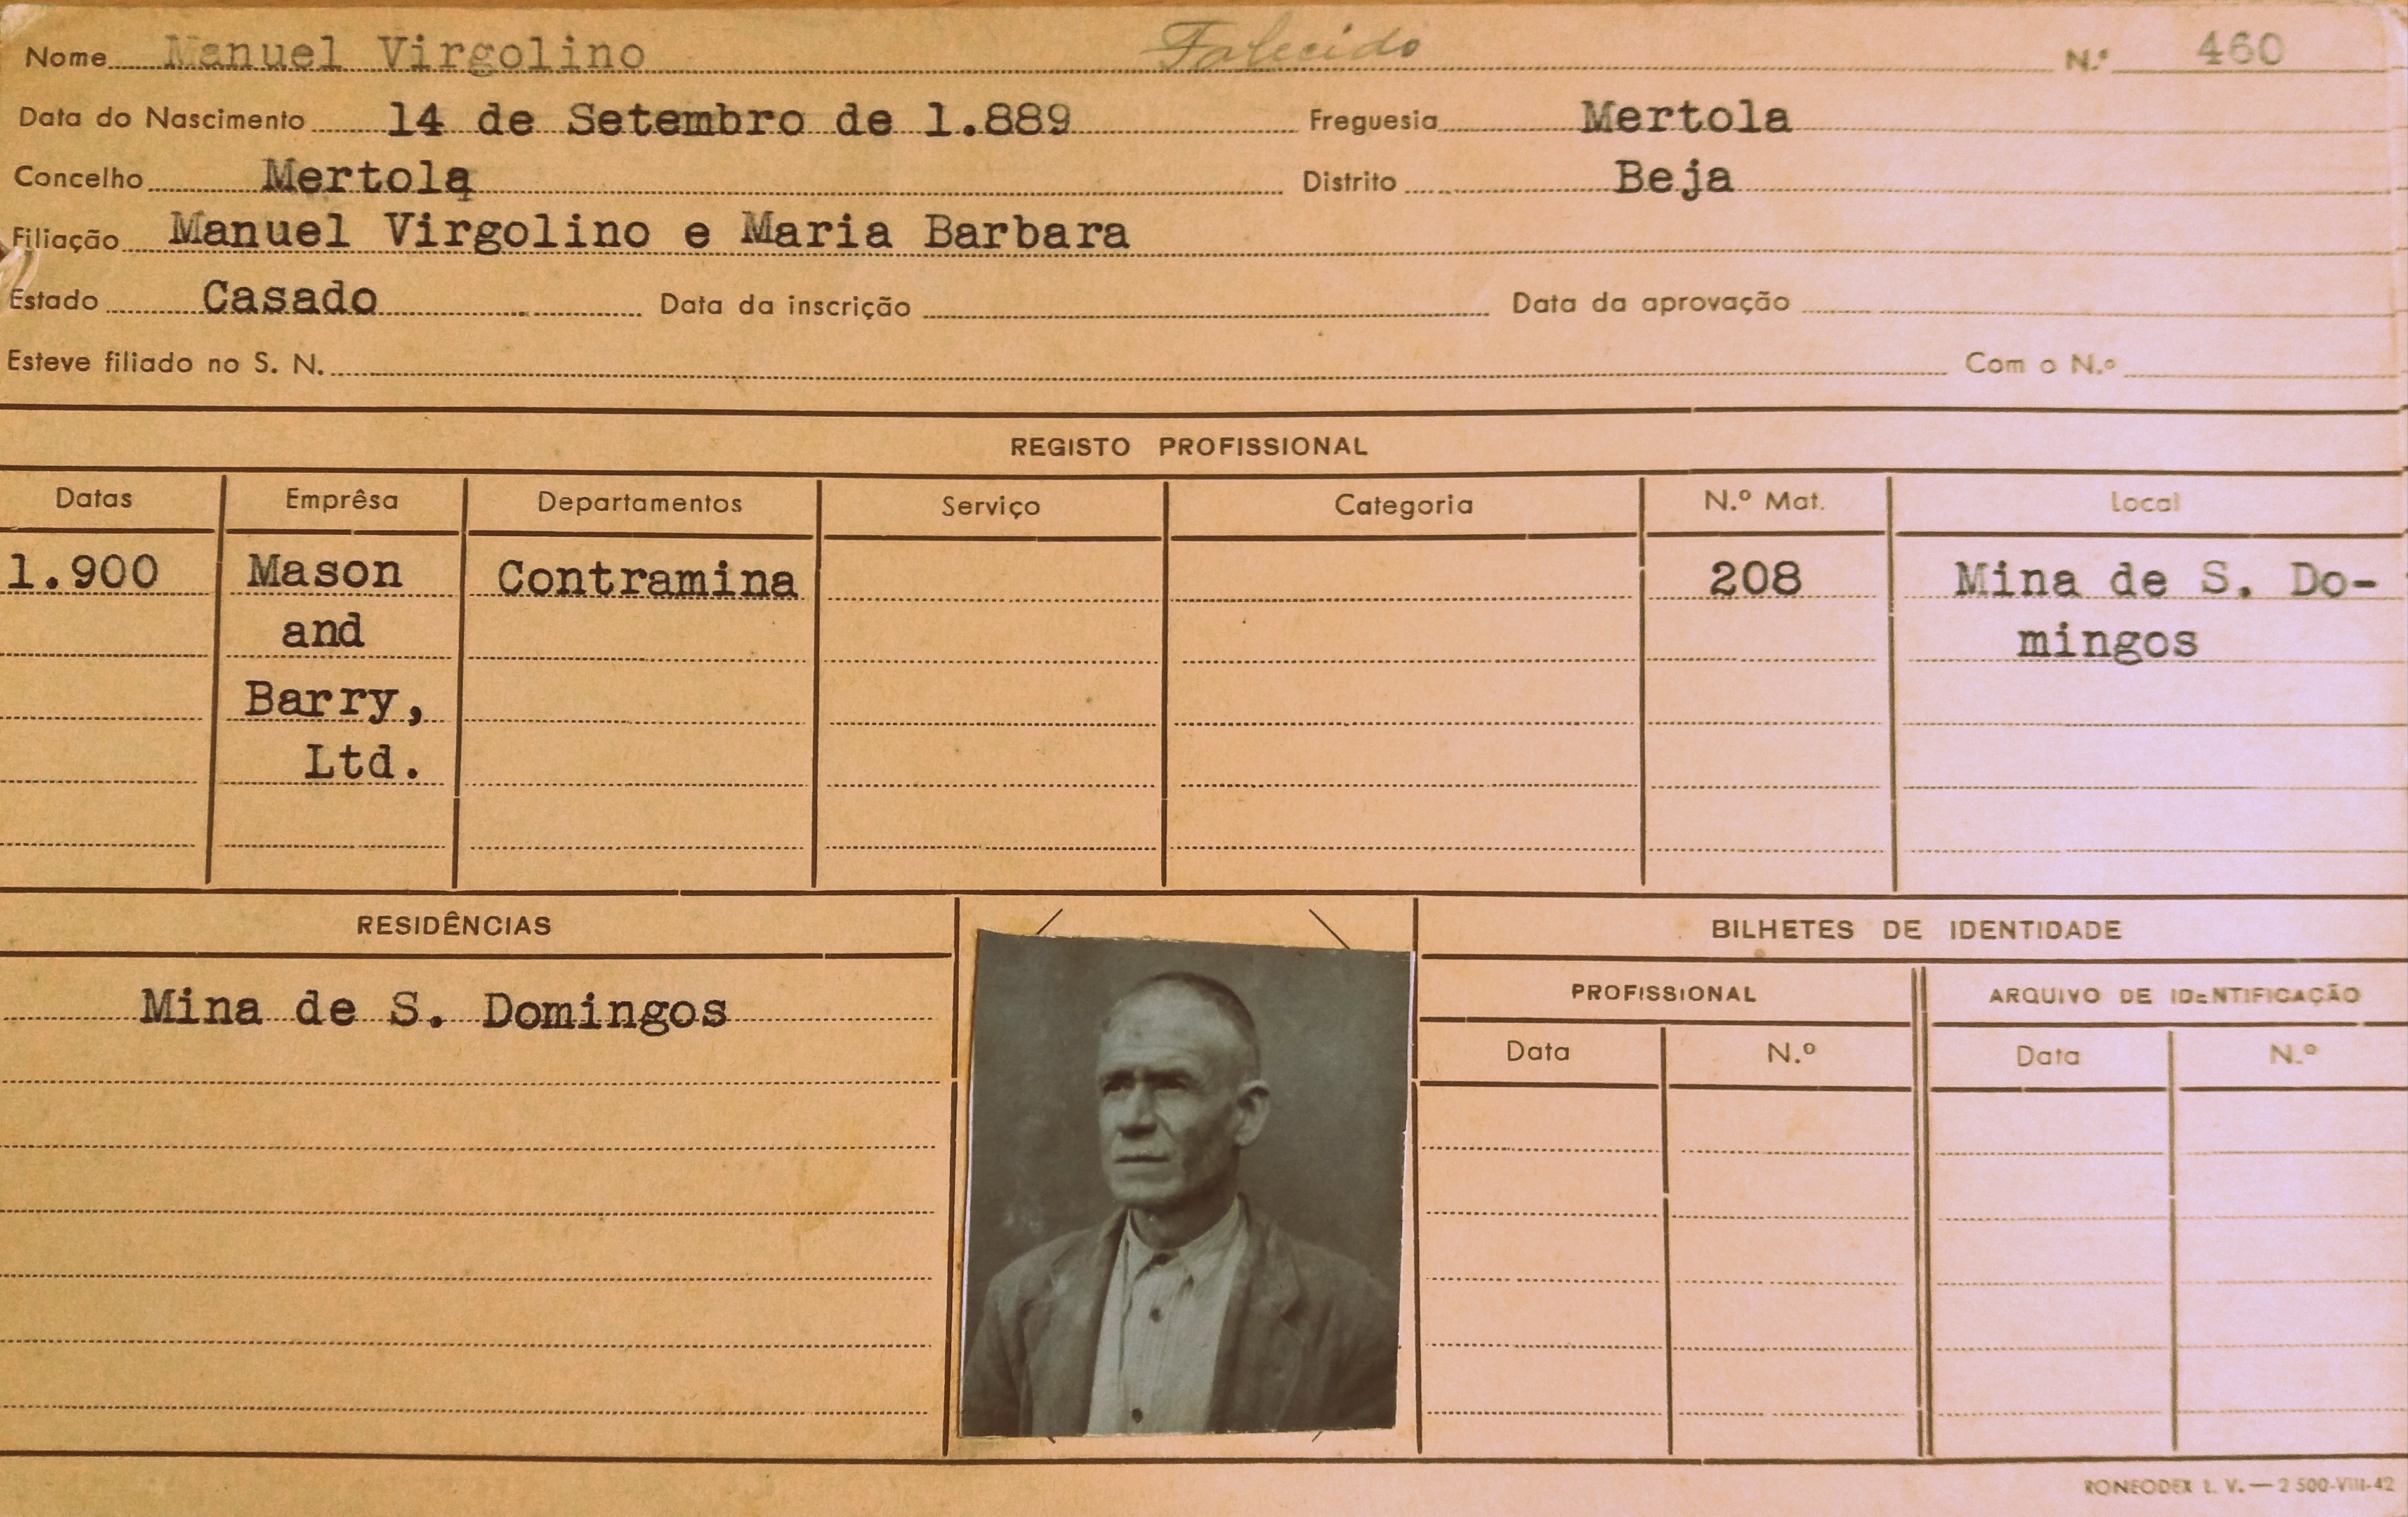 Nome Manuel Virgolino Falecido N.º 460
Data do Nascimento 14 de Setembro de 1.889 Freguesia Mertola
Concelho Mertola Distrito Beja
Filiação Manuel Virgolino e Maria Barbara
Estado Casado Data da inscrição Data da aprovação
Esteve filiado no S. N. Com o N.º
REGISTO PROFISSIONAL
Datas Emprêsa Departamentos Serviço Categoria N.º Mat. Local
1.900 Mason Contramina 208 Mina de S. Do-
and mingos
Barry,
Ltd.
RESIDÊNCIAS BILHETES DE IDENTIDADE
Mina de S. Domingos PROFISSIONAL ARQUIVO DE IDENTIFICAÇÃO
Data N.º Data N.º
RONEODEX L. V. — 2 500-VIII-42